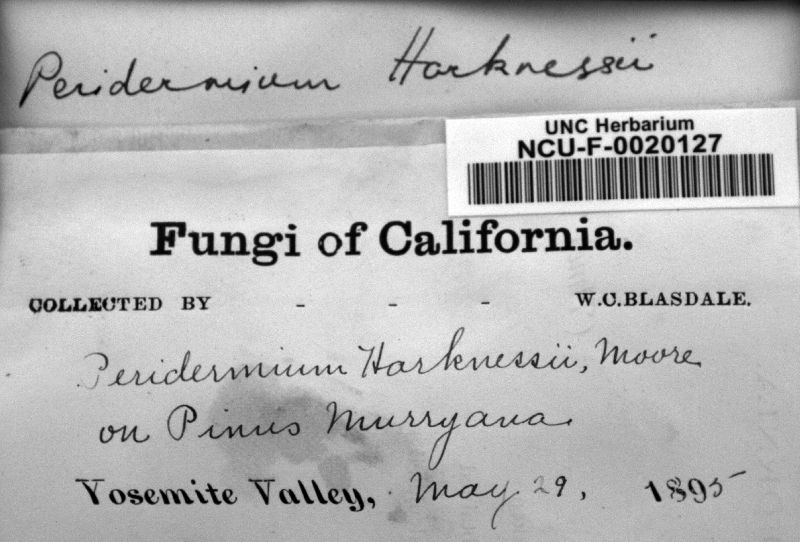 Peridermium Harknessii
UNC Herbarium
NCU-F-0020127
Fungi of California.
COLLECTED BY - - - W.C.BLASDALE.
Peridermium Harknessii, Moore
on Pinus Murryana.
Yosemite Valley, May 29, 1895